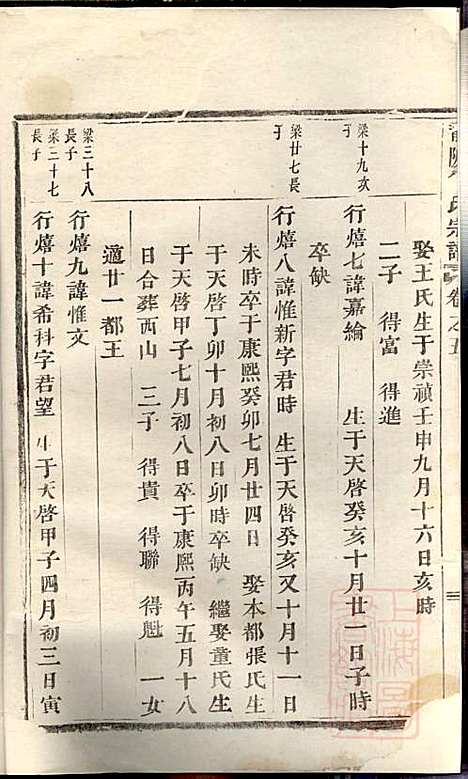 氏宗譜 卷之五
娶王氏生于崇禎壬申九月十六日亥時
二子 得富 得進
梁十九次子
行熺七諱嘉綸 生于天啓癸亥十月廿一日子時
卒缺
梁廿七長子
行熺八諱惟新字君時 生于天啓癸亥又十月十一日
未時卒于康熙癸卯七月廿四日 娶本都張氏生
于天啓丁卯十月初八日卯時卒缺 繼娶童氏生
于天啓甲子七月初八日卒于康熙丙午五月十八
日合葬西山 三子 得貴 得聯 得魁 一女
適廿一都王
梁三十八長子
行熺九諱惟文
梁三十七長子
行熺十諱希科字君望 生于天啓甲子四月初三日寅